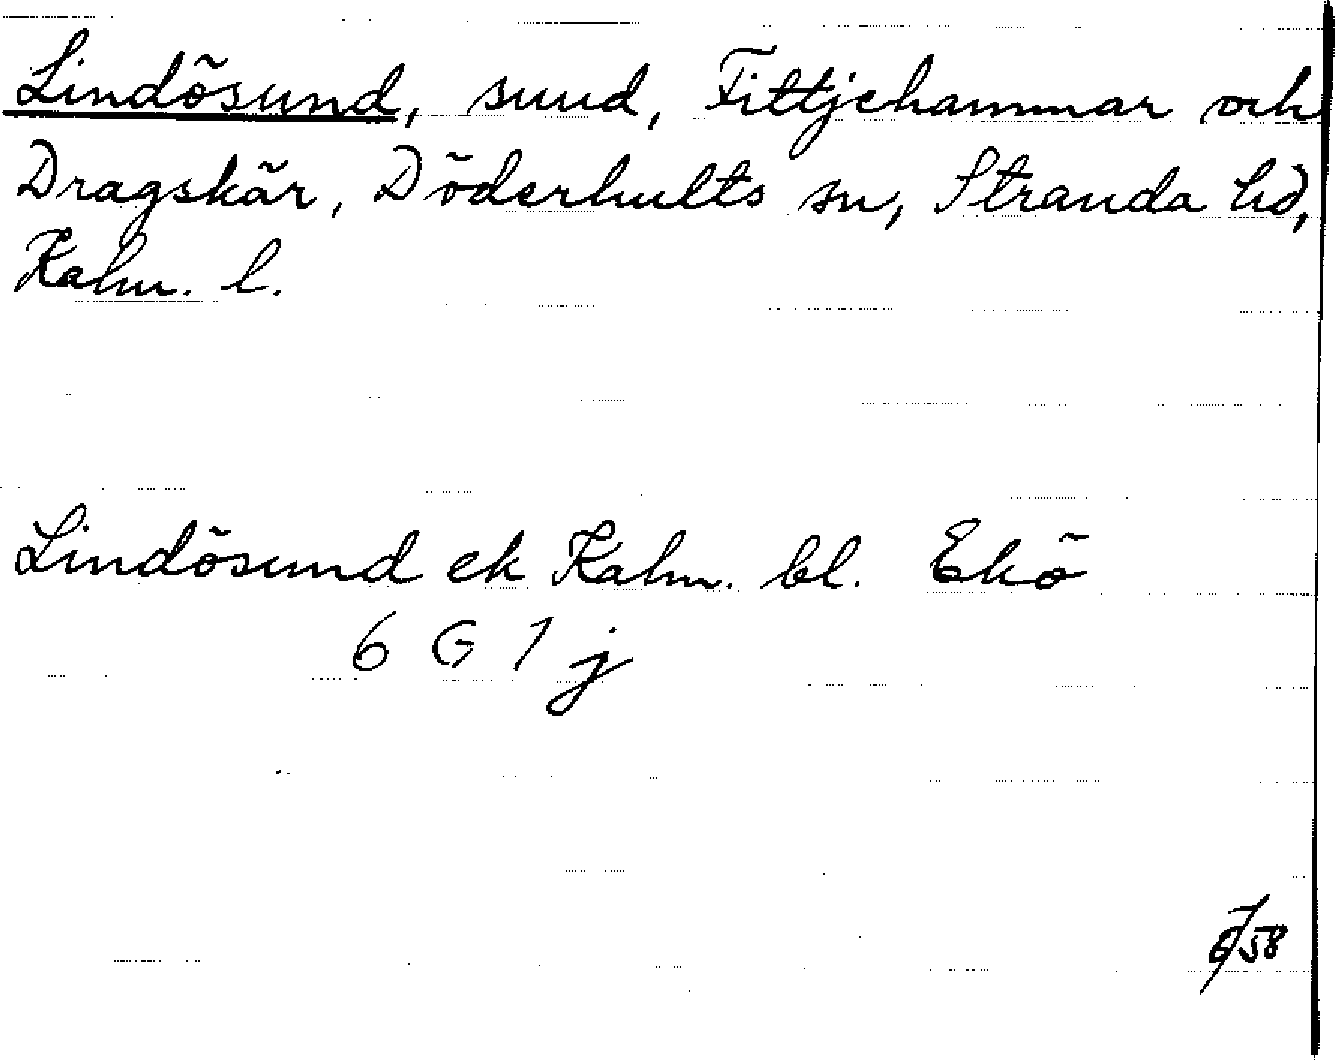 Lindösund, sund, Fittjehammar och
Dragskär, Döderhults sn, Stranda hd,
Kalm. l.
Lindösund ek Kalm. bl. Ekö
6 G 1 j
58